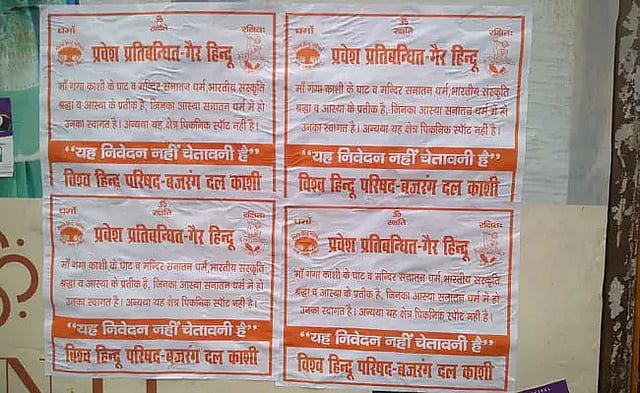 ॐ
धर्मो रक्षति रक्षितः
प्रवेश प्रतिबन्धित-गैर हिन्दू
माँ गंगा काशी के घाट व मन्दिर सनातन धर्म,भारतीय संस्कृति
श्रद्धा व आस्था के प्रतीक है, जिनका आस्था सनातन धर्म में हो
उनका स्वागत है। अन्यथा यह क्षेत्र पिकनिक स्पॉट नहीं है।
“यह निवेदन नहीं चेतावनी है”
विश्व हिन्दू परिषद-बजरंग दल काशी
ॐ
धर्मो रक्षति रक्षितः
प्रवेश प्रतिबन्धित-गैर हिन्दू
माँ गंगा काशी के घाट व मन्दिर सनातन धर्म,भारतीय संस्कृति
श्रद्धा व आस्था के प्रतीक है, जिनका आस्था सनातन धर्म में हो
उनका स्वागत है। अन्यथा यह क्षेत्र पिकनिक स्पॉट नहीं है।
“यह निवेदन नहीं चेतावनी है”
विश्व हिन्दू परिषद-बजरंग दल काशी
ॐ
धर्मो रक्षति रक्षितः
प्रवेश प्रतिबन्धित-गैर हिन्दू
माँ गंगा काशी के घाट व मन्दिर सनातन धर्म,भारतीय संस्कृति
श्रद्धा व आस्था के प्रतीक है, जिनका आस्था सनातन धर्म में हो
उनका स्वागत है। अन्यथा यह क्षेत्र पिकनिक स्पॉट नहीं है।
“यह निवेदन नहीं चेतावनी है”
विश्व हिन्दू परिषद-बजरंग दल काशी
ॐ
धर्मो रक्षति रक्षितः
प्रवेश प्रतिबन्धित-गैर हिन्दू
माँ गंगा काशी के घाट व मन्दिर सनातन धर्म,भारतीय संस्कृति
श्रद्धा व आस्था के प्रतीक है, जिनका आस्था सनातन धर्म में हो
उनका स्वागत है। अन्यथा यह क्षेत्र पिकनिक स्पॉट नहीं है।
“यह निवेदन नहीं चेतावनी है”
विश्व हिन्दू परिषद-बजरंग दल काशी